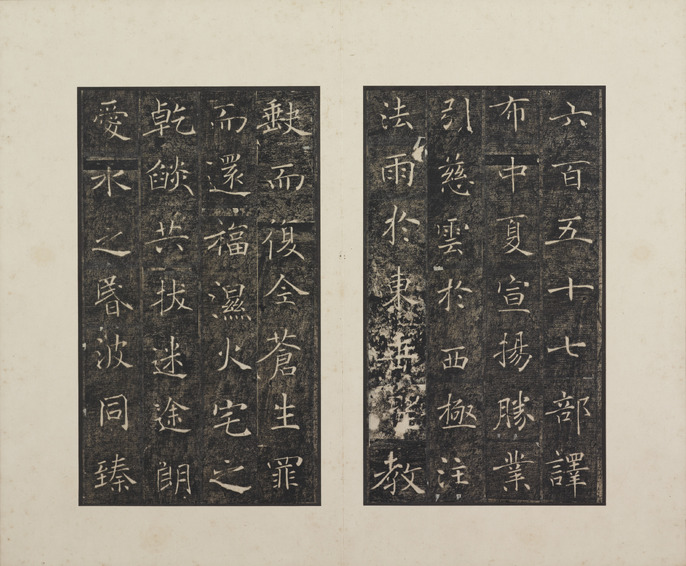 六百五十七部譯
布中夏宣揚勝業
引慈雲於西極注
法雨於東垂聖教
缺而復全蒼生罪
而還福濕火宅之
乾燄共拔迷途朗
愛水之昏波同臻